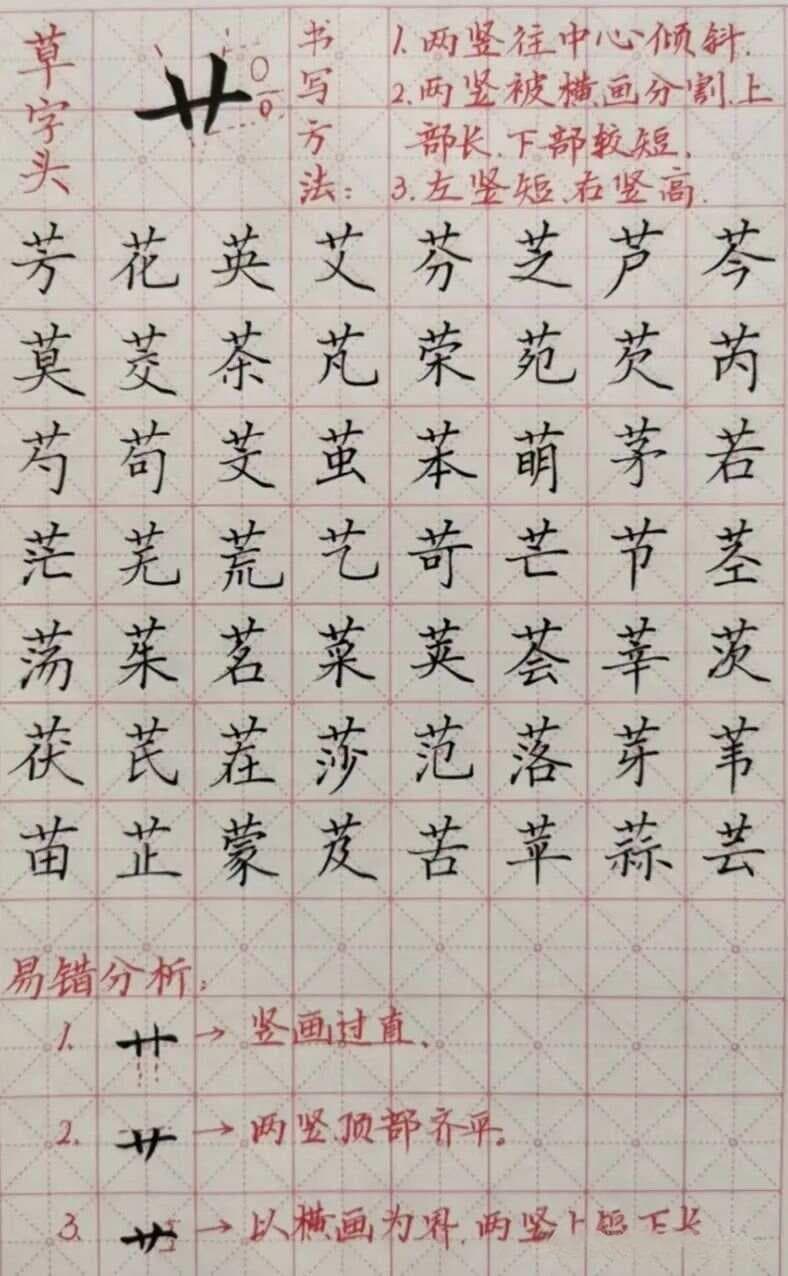 草字头
艹
书写方法：
1.两竖往中心倾斜.
2.两竖被横画分割.上
部长.下部较短.
3.左竖短.右竖高.
芳花英艾芬芝芦芩
莫茭茶芃荣苑芡芮
芍苟芆茧苯萌茅若
茫芜荒艺苛芒节茎
荡茱茗菜荚荟莘茨
茯芪茬莎范落芽苇
苗芷蒙芨苦苹蒜芸
易错分析：
1. 艹→竖画过直.
2. 艹→两竖顶部齐平。
3. 艹→以横画为界.两竖上短下长